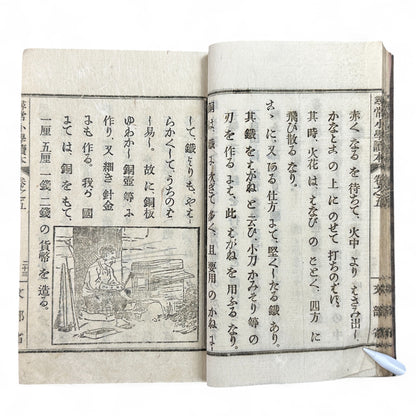 尋常小學讀本 卷之五 文部省
赤くなるを待ちて、火中よりはさみ出し、
かなとこの上にのせて打ちのばす。
其時、火花は、はなびのごとく、四方に
飛び散るなり。
こゝに又ある仕方にて堅くしたる鐵あり。
其鐵をはがねと云ひ、小刀かみそり等の
刃を作るには、此はがねを用ふるなり。
銅は、鐵に次ぎて多く、且要用のかねに
して、鐵よりも、やは
らかくして、うちのば
し易し。故に、銅板
ゆわかし銅壺等に
作り、又細き針金
にも作る。我が國
にては、銅をもて、
一厘五厘一錢二錢の貨幣を造る。
尋常小學讀本 卷之五 文部省